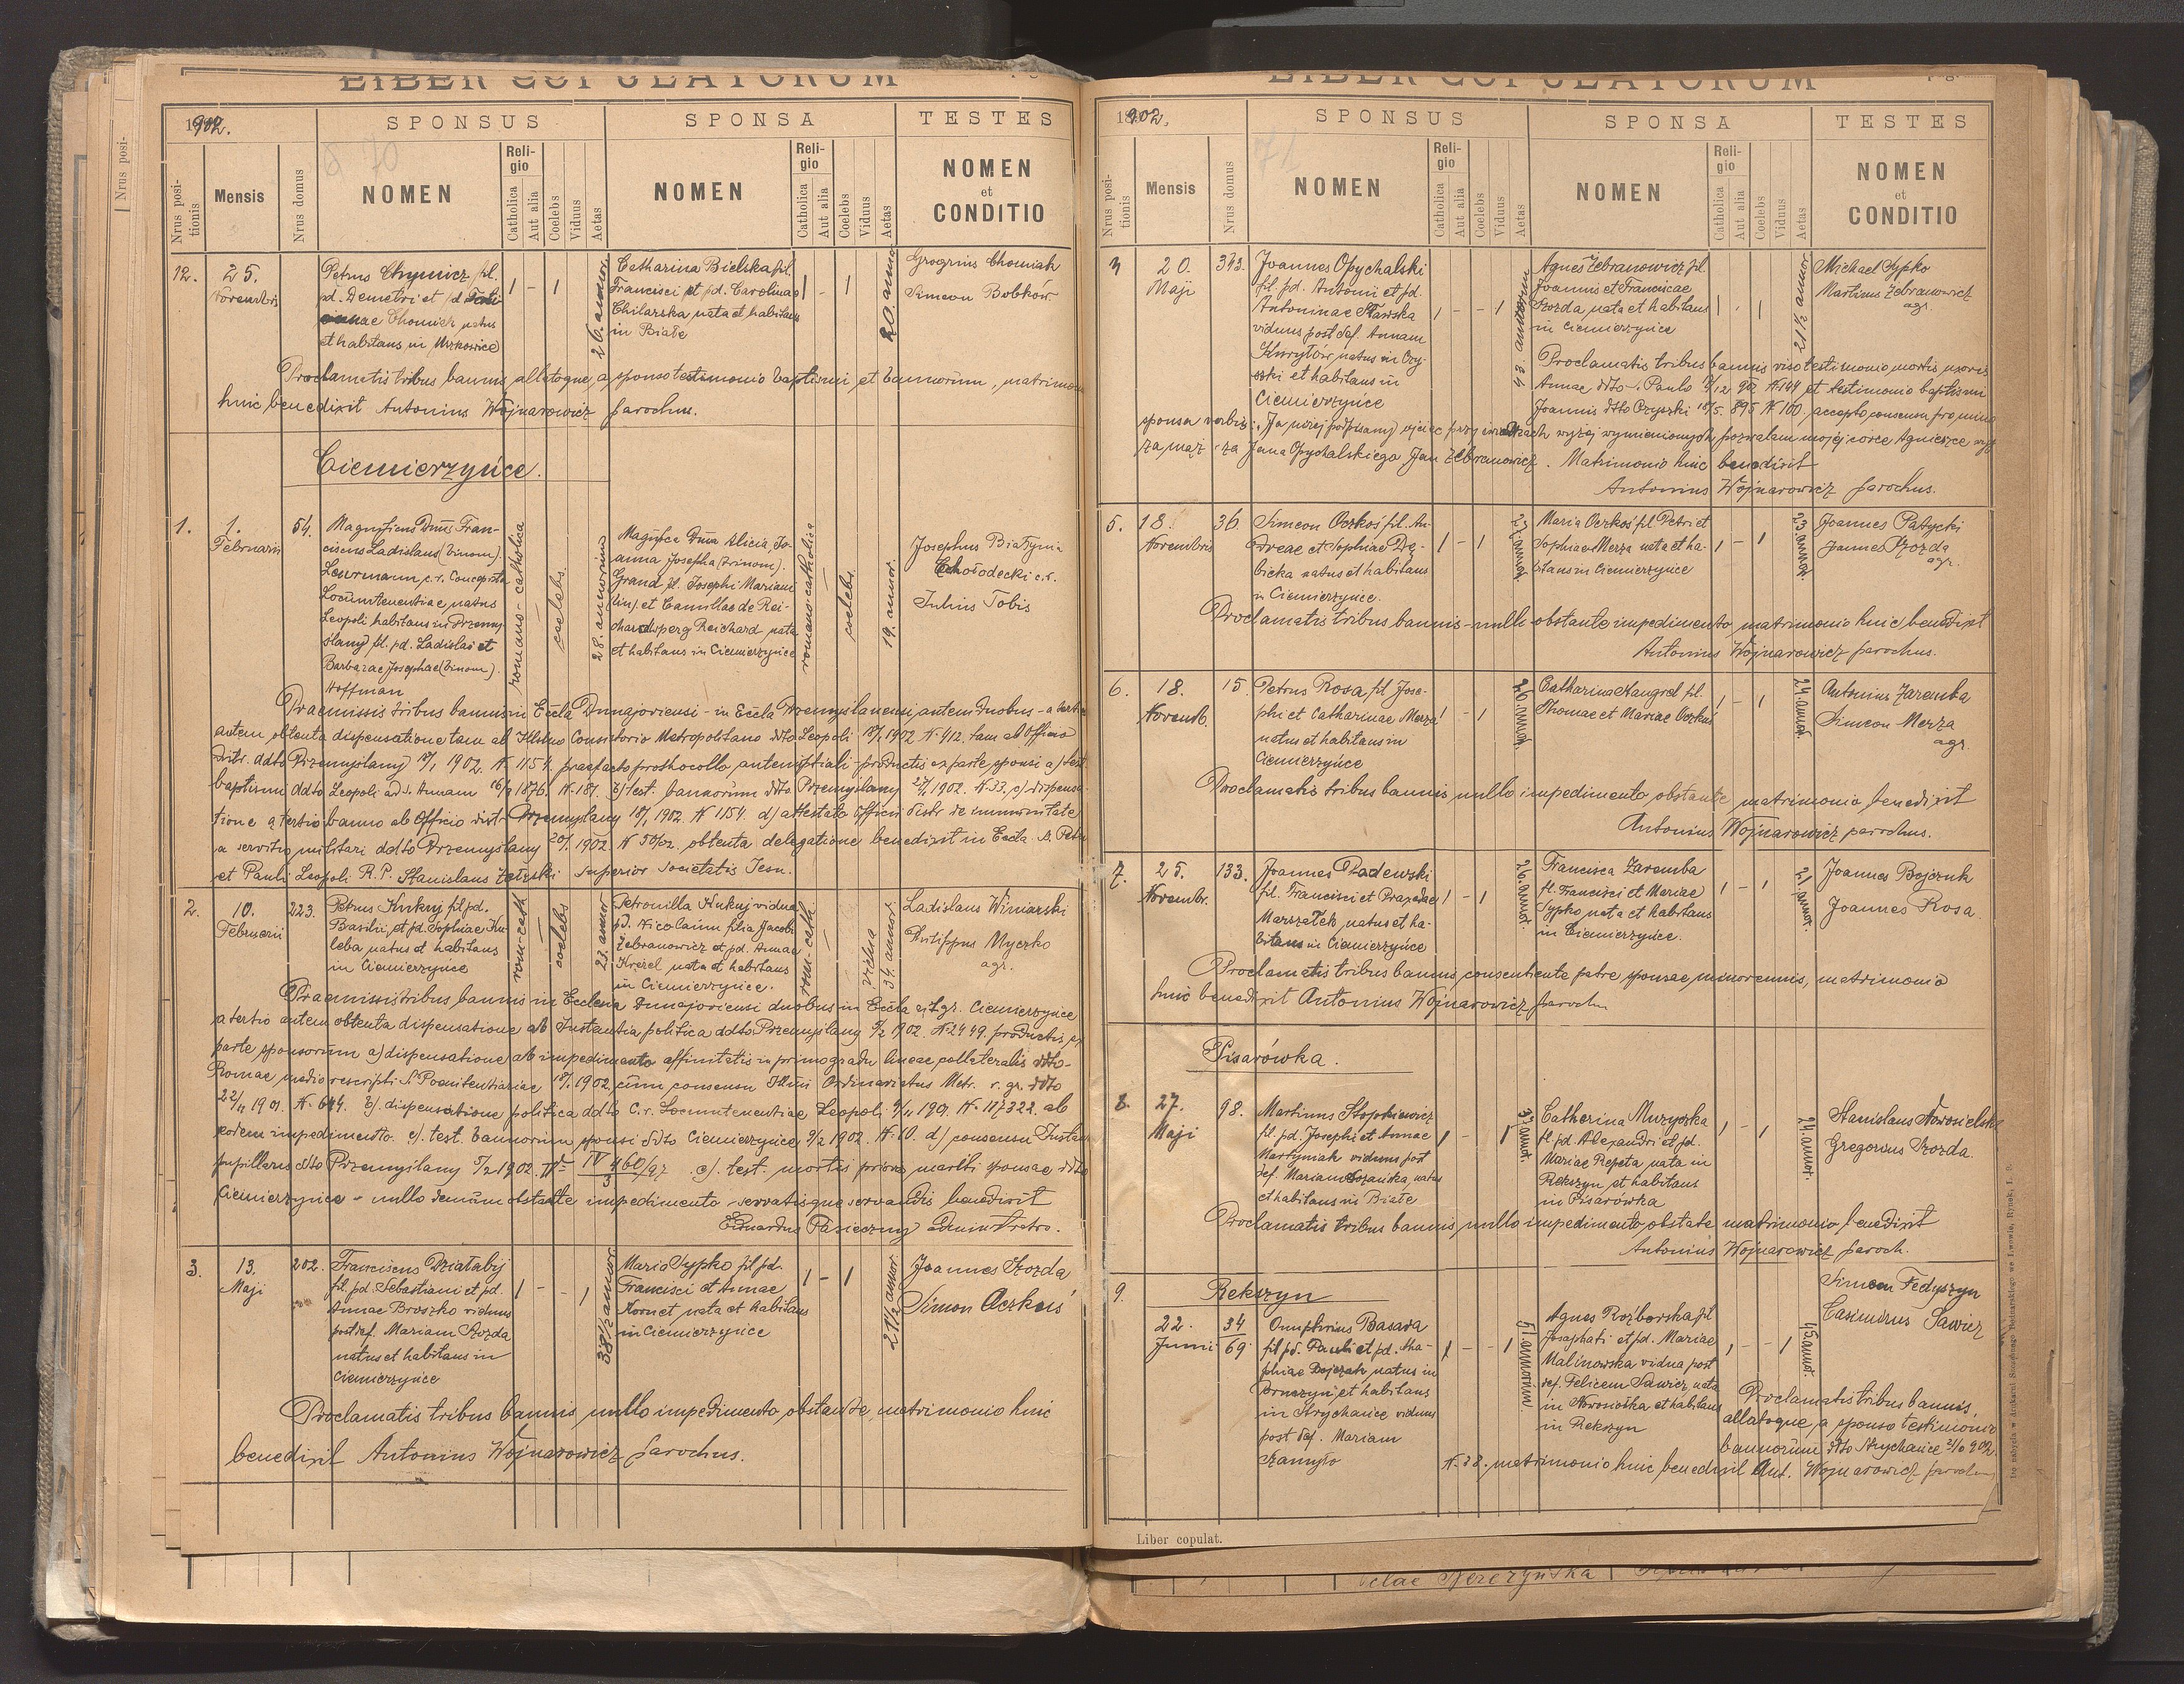 LIBER COPULATORUM
1902.
SPONSUS
SPONSA
TESTES
70
Nrus posi-
tionis
Mensis
Nrus domus
NOMEN
Reli-
gio
Catholica
Aut alia
Coelebs
Viduus
Aetas
NOMEN
Reli-
gio
Catholica
Aut alia
Coelebs
Viduus
Aetas
NOMEN
et
CONDITIO
12.
25.
Novembris
Petrus Chymicz fil.
pd. Demetri et pd.
Chomiek natus
et habitans in
1 - 1
26. annor.
Catharina Bielska fil.
Francisci et pd. Carolinae
Chilarska nata et habitans
in Białe
1 - 1
20. anno
Gregorius Chomiak
Simeon Bobków
Proclamatis tribus bannis, allatoque a sponso testimonio baptismi et bannorum, matrimo
huic benedixit Antonius Wojnarowicz parochus.
Ciemierzyńce.
1.
1.
Februarii
54.
Magnificus Dnus Fran-
ciscus Ladislaus (binom).
Leurmann c. r. Concepista
Locumtenentiae natus
Leopoli habitans in Przemy-
ślany fil. pd. Ladislai et
Barbarae Josephae (binom).
Hoffman
romano-catholica
coelebs.
28. annorum
Magnifica Dna Alicia Jo-
anna Josepha (trinom).
Grand fil. Josephi Mariani
(bin) et Camillae de Rei-
chardsperg Reichard nata
et habitans in Ciemierzyńce
romano-catholica
coelebs.
19. annor.
Josephus Białynia
Chołodecki c. r.
Julius Tobis
Praemissis tribus bannis in Eccla Dunajoviensi - in Eccla Przemyslanensi autem duobus - a tertio
autem obtenta dispensatione tam ab Illstmo Consistorio Metropolitano ddto Leopoli 18/1 1902 N 412. tam ab Officio
Distr. ddto Przemyślany 18/1 1902. N 1154. peracto prothocollo antenuptiali - productis ex parte sponsi a) test.
baptismi ddto Leopoli ad s. Annam 16/9 1876 N. 181. b) test. bannorum ddto Przemyślany 1902. N 33. c) dispensa-
tione a tertio banno ab Officio distr. Przemyślany 18/1 1902 N 1154. d) attestato Officii distr. de immunitate
a servitio militari ddto Przemyślany 20/1 1902 N 50/02. obtenta delegatione benedixit in Eccla S. Petri
et Pauli Leopoli R. P. Stanislaus Załęski Superior Societatis Jesu.
2.
10.
Februarii
223.
Petrus Kukuj fil. pd.
Basilii et pd. Sophiae Ku-
leba natus et habitans
in Ciemierzyńce
rom-cath
coelebs
23. annor
Petronilla Kukuj vidua
p. d. Nicolaum filia Jacobi
Żebranowicz et pd. Annae
Krezel nata et habitans
in Ciemierzyńce.
rom-cath.
vidua
34. annor.
Ladislaus Winiarski
Philippus Myczko
agr.
Praemissis tribus bannis in Ecclesia Dunajoviensi duobus in Eccla rit. gr. Ciemierzyńce
a tertio autem obtenta dispensatione ab Instantia politica ddto Przemyślany 5/2 1902. N 2449. productis ex
parte sponsorum a) dispensatione ab impedimento affinitatis in primo gradu lineae collateralis ddto-
Romae medio rescripti S. Poenitentiariae 18/1 1902. cum consensu Illmi Ordinariatus Metr. r. gr. ddto
22/11 1901. N. 644. b). dispensatione politica ddto C. r. Locumtenentiae Leopoli 9/11 1901. N. 117322. ab
eodem impedimento. c). test. bannorum sponsi ddto Ciemierzyńce 9/2 1902. N. 10. d) consensu Instan.
pupillaris ddto Przemyślany 5/2 1902. IV 460/97 3 e). test. mortis prioris mariti sponsae ddto
Ciemierzyńce - nullo demum obstante impedimento servatisque servandis benedixit
Eduardus Pasieczny administrator.
3.
13.
Maji
202.
Franciscus Działabij
fil. pd. Sebastiani et pd.
Annae Broszko viduus
post def. Mariam Szozda
natus et habitans in
Ciemierzyńce
1 - - 1
38 1/2 annor.
Maria Sypko fil. pd.
Francisci et Annae
Kornet nata et habitans
in Ciemierzyńce
1 - 1
21 1/2 annor.
Joannes Szozda
Simon Oczkuś
Proclamatis tribus bannis nullo impedimento obstante, matrimonio huic
benedixit Antonius Wojnarowicz parochus.
LIBER COPULATORUM
1902.
SPONSUS
SPONSA
TESTES
71
Nrus posi-
tionis
Mensis
Nrus domus
NOMEN
Reli-
gio
Catholica
Aut alia
Coelebs
Viduus
Aetas
NOMEN
Reli-
gio
Catholica
Aut alia
Coelebs
Viduus
Aetas
NOMEN
et
CONDITIO
20.
Maji
393.
Joannes Opychalski
fil. pd. Antonii et pd.
Antoninae Stawska
viduus post def. Annam
Kuryłów natus in Czy-
szki et habitans in
Ciemierzyńce
1 - - 1
43. annorum
Agnes Żebranowicz fil.
Joannis et Franciscae
Szozda nata et habitans
in Ciemierzyńce
21 1/2 annor.
Michael Sypko
Martinus Żebranowicz
agr.
Proclamatis tribus bannis, viso testimonio mortis uxoris
Annae ddto S. Paulo 901 N 149 et testimonio baptismi
Joannis ddto Czyszki 18/5. 895 N 100. accepto consensu pro minor.
sponsa verbis: "Ja niżej podpisany ojciec przy świadkach wyżej wymienionych pozwalam mojej córce Agnieszce wyjść
za mąż za Jana Opychalskiego Jan Żebranowicz. Matrimonio huic benedixit
Antonius Wojnarowicz parochus.
5.
18.
Novembris
36.
Simeon Oczkoś fil. An-
dreae et Sophiae Dę-
bicka natus et habitans
in Ciemierzyńce.
1 - 1
Maria Oczkoś fil. Petri et
Sophiae Merza nata et ha-
bitans in Ciemierzyńce
1 - 1
23. annor.
Joannes Patycki
Joannes Szozda
agr.
Proclamatis tribus bannis - nullo obstante impedimento, matrimonio huic benedixit
Antonius Wojnarowicz parochus.
6.
18.
Novemb.
15.
Petrus Rosa fil. Jose-
phi et Catharinae Merza
natus et habitans in
Ciemierzyńce
1 - 1
26. annor.
Catharina Naugrel fil.
Thomae et Mariae Oczkuś
1 - 1
24. annor.
Antonius Zaremba
Simeon Merza
agr.
Proclamatis tribus bannis nullo impedimento obstante matrimonio benedixit
Antonius Wojnarowicz parochus.
7.
25.
Novembr.
133.
Joannes Radewski
fil. Francisci et Praxedae
Marszałek natus et ha-
bitans in Ciemierzyńce
1 - 1
26. annor.
Francisca Zaremba
fil. Francisci et Mariae
Sypko nata et habitans
in Ciemierzyńce.
1 - 1
21. annor.
Joannes Bojczuk
Joannes Rosa
Proclamatis tribus bannis, consentiente patre sponsae minorennis, matrimonio
huic benedixit Antonius Wojnarowicz paroch
Pisarówka.
8.
27.
Maji
98.
Martinus Stopkiewicz
fil. pd. Josephi et Annae
Martyniak viduus post
def. Mariam natus
et habitans in Białe
1 - 1
37. annor.
Catharina Muzyczka
fil. pd. Alexandri et pd.
Mariae Repeta nata in
Rekszyn et habitans
in Pisarówka
1 - 1
24. annor.
Stanislaus Nowosielski
Gregorius Szozda.
Proclamatis tribus bannis, nullo impedimento obstate matrimonio benedixit
Antonius Wojnarowicz paroch.
9.
Rekszyn
22.
Junii
34
69
Onuphrius Basara
fil. pd. Pauli et pd. Aga-
phiae Bojczuk natus in
et habitans
in Strychańce viduus
post def. Mariam
Szamyło
1 - - 1
51. annorum.
Agnes Rozborska fil.
Josaphati et pd. Mariae
Malinowska vidua post
def. Felicem Sawicz, nata
in Nowosiołka et habitans
in Rekszyn
1 - - 1
45. annor.
Simeon Fedyszyn
Casimirus Sawicz
Proclamatis tribus bannis,
allatoque a sponso testimonio
bannorum ddto Strychańce 902.
N. 38. matrimonio huic benedixit Ant. Wojnarowicz paroch
Liber copulat.